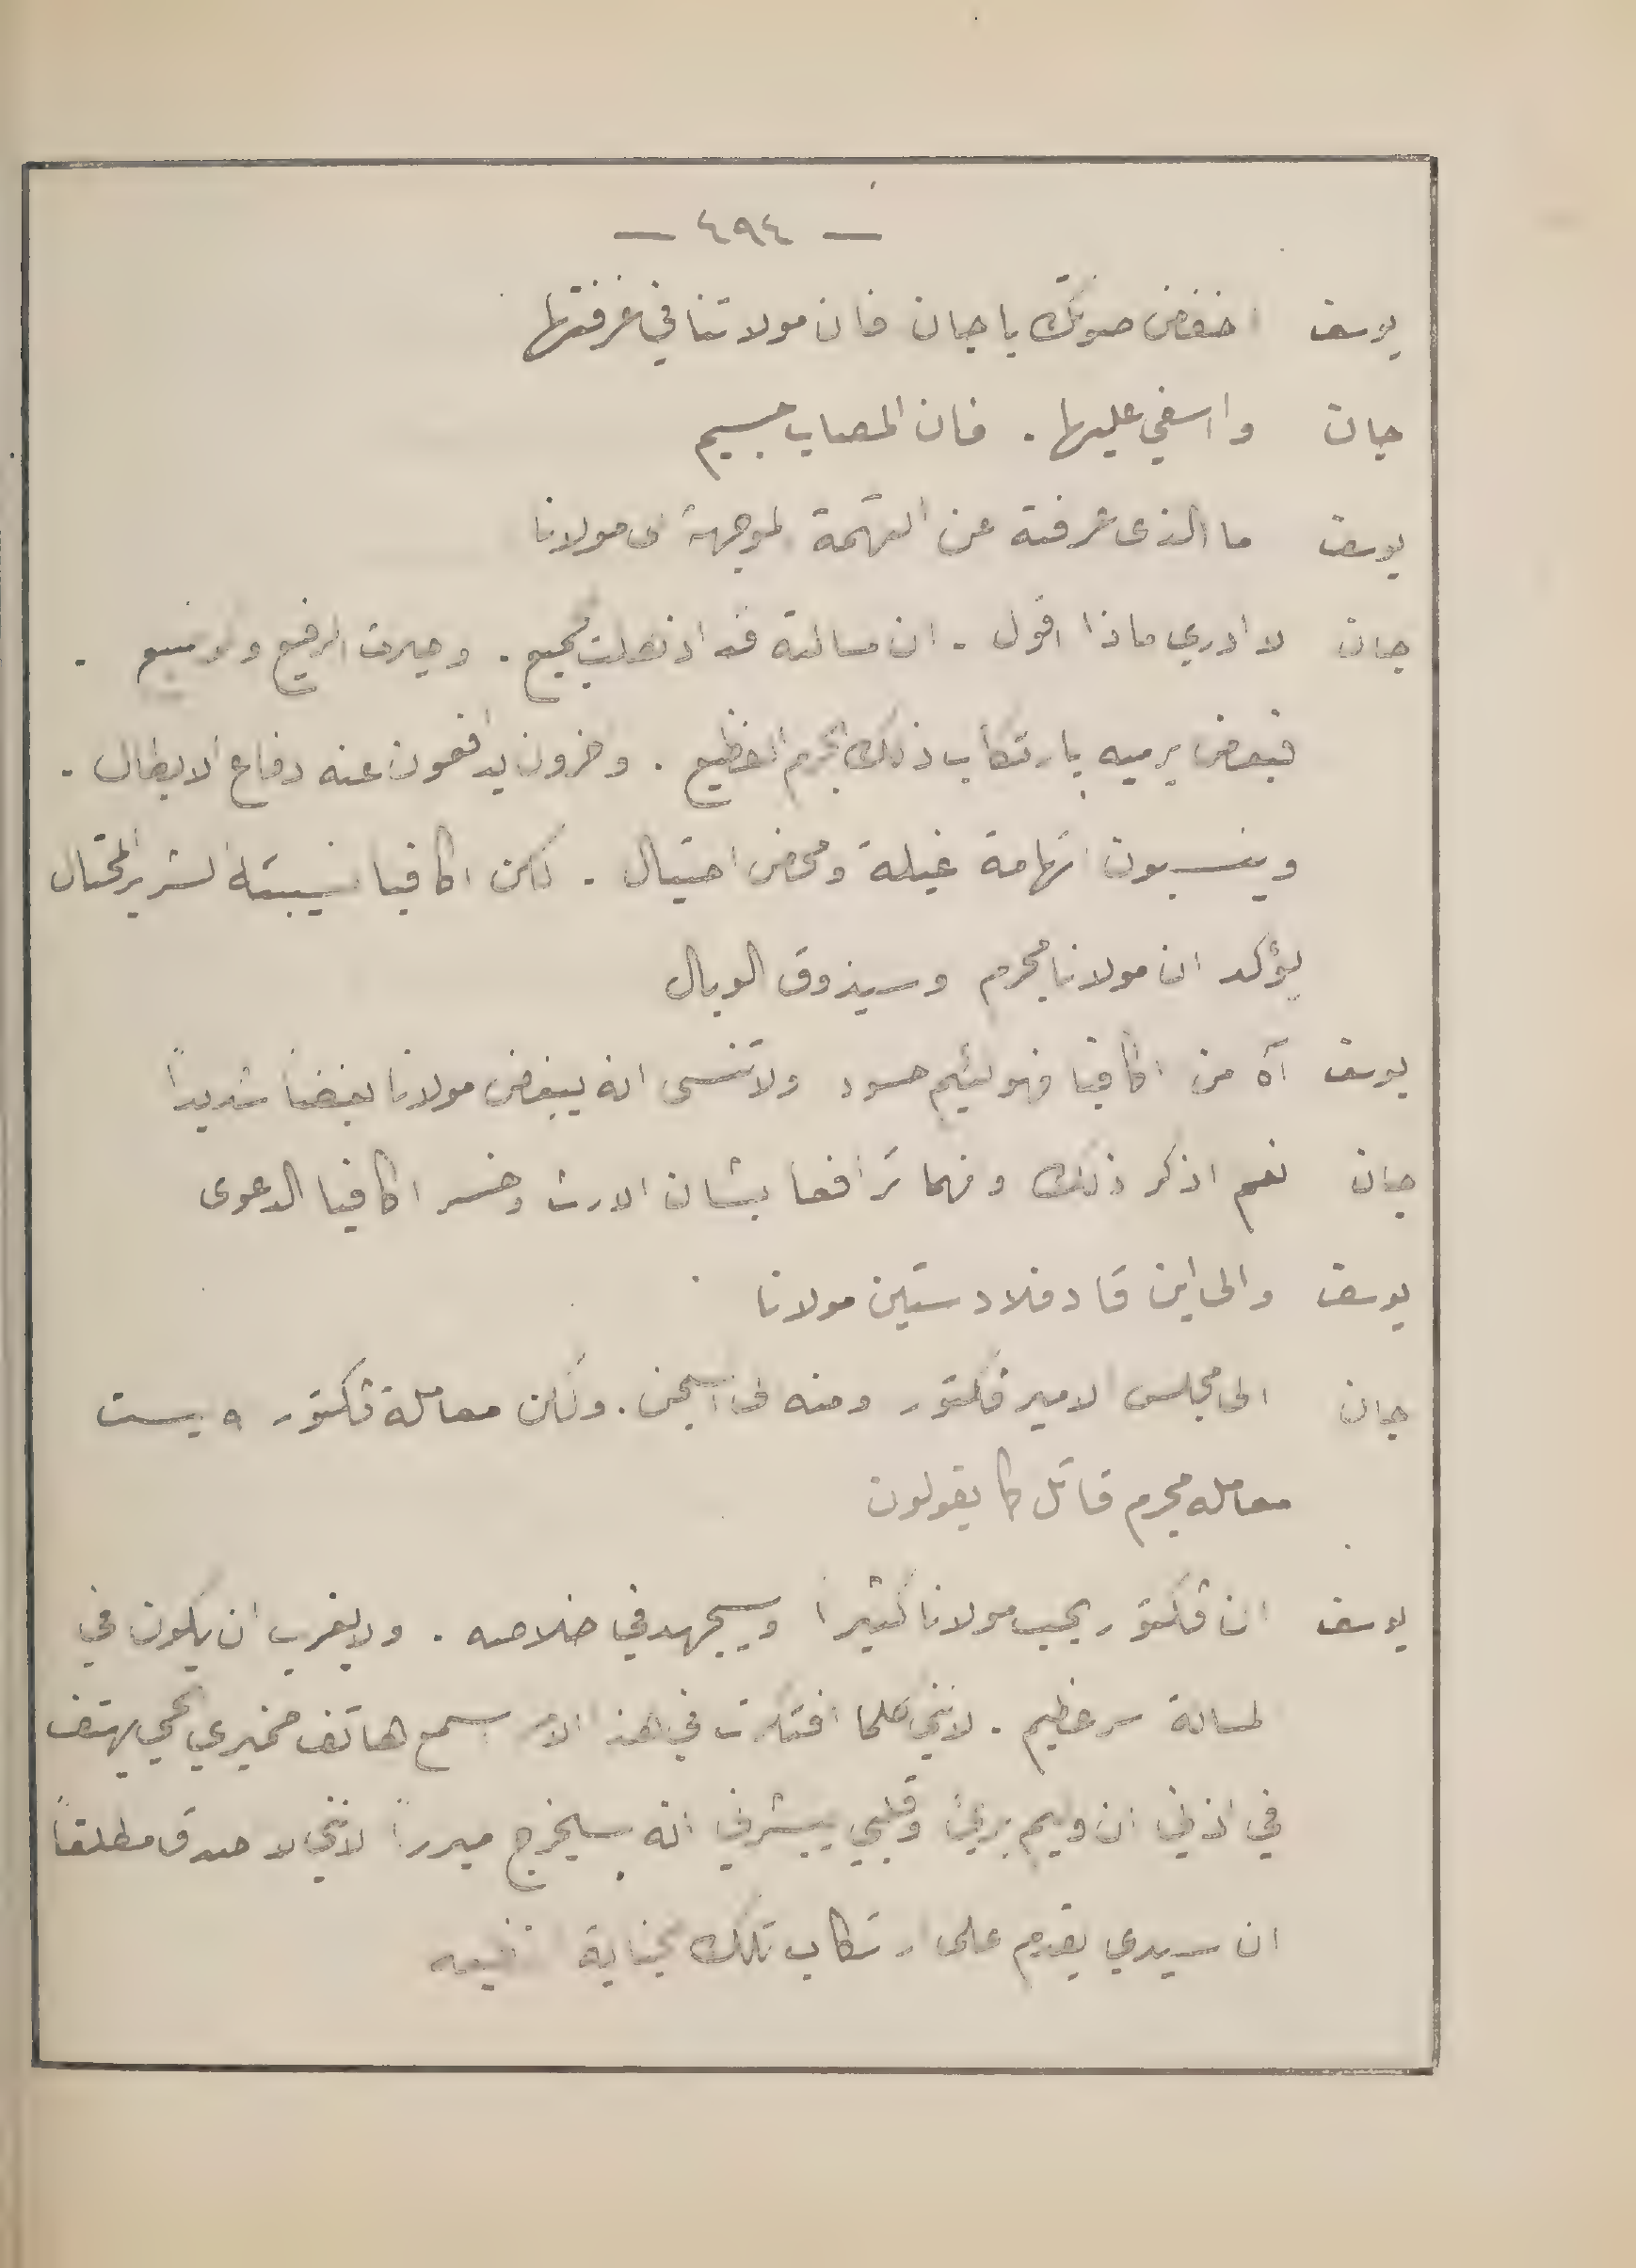 — ٤٩٤ —
يوسف اخفض صوتك يا جان فان مولاتنا في غرفتها
جان وا اسفي عليها . فان المصاب جسيم
يوسف ما الذي عرفته عن التهمة الموجهة الى مولانا
جان لا ادري ماذا اقول . ان مسالته قد اذهلت الجميع . وحيرت الرفيع والوضيع .
فبعض يرميه بارتكاب ذلك الجرم الفظيع . واخرون يدافعون عنه دفاع الابطال .
وينسبون اتهامه غيلة ومحض احتيال . لكن اكافيا نسيبته الشرير المحتال
يؤكد ان مولانا مجرم وسيذوق الوبال
يوسف آه من اكافيا فهو لئيم حسود ولا تنسى انه يبغض مولانا بغضاً شديداً
جان نعم اذكر ذلك وانهما ترافعا بشان الارث وخسر اكافيا الدعوى
يوسف والى اين قاد فلادستين مولانا
جان الى مجلس الامير فكتور ومنه الى السجن . ولكن معاملة فكتور له ليست
معامله مجرم قاتل كما يقولون
يوسف ان فكتور يحب مولانا كثيرا وسيجهد في خلاصه . ولا يغرب ان يكون في
المسالة سر عظيم . لانني كلما افتكرت في هذا الامر اسمع هاتف ضميري الحي يهتف
في اذني ان وليم بريئ وقلبي يبشرني انه سيخرج مبرراً لانني لا اصدق مطلقاً
ان سيدي يقدم على ارتكاب تلك الجناية